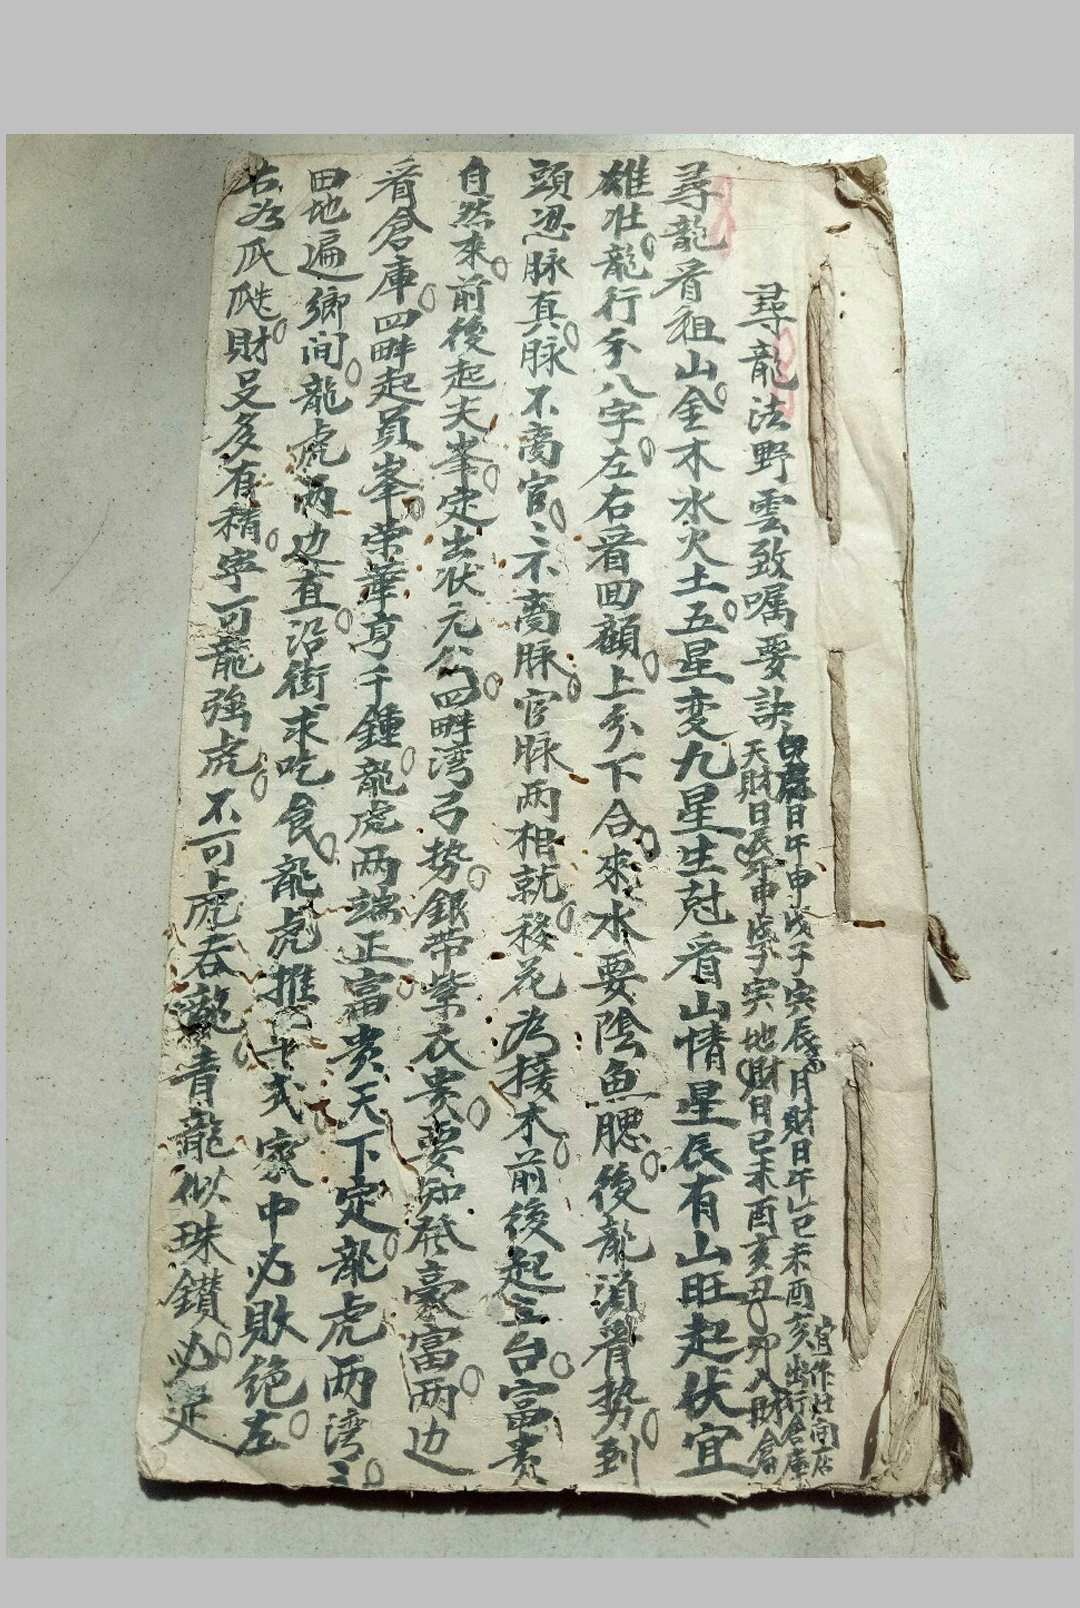 尋龍法野雲致嘱要訣
日午申戌子寅辰 月財日午 巳未酉亥出行倉庫
宜作灶间店
天財日辰午申戌子寅 地財日巳未酉亥丑卯入財倉
尋龍看祖山金木水火土五星变九星生尅看山情星辰有山旺起伏宜
雄壮龍行分八字左右看回顧上分下合來水要陰魚腮後龍須看势到
頭忍脉真脉不离官〻不离脉官脉两相就移花为接木前後起立台富貴
自然來前後起夫峯定出状元公四畔湾弓势銀带紫衣贵要知発豪富两边
看倉庫四畔起員峯荣華亨千鍾龍虎两端正富贵天下定龍虎两湾〻
田地遍鄉间龍虎两边直沿街求吃食龍虎推 式家中必敗绝左
右为瓜瓞財旦多有積寧可龍強虎不可虎吞龍青龍似珠鑽必定